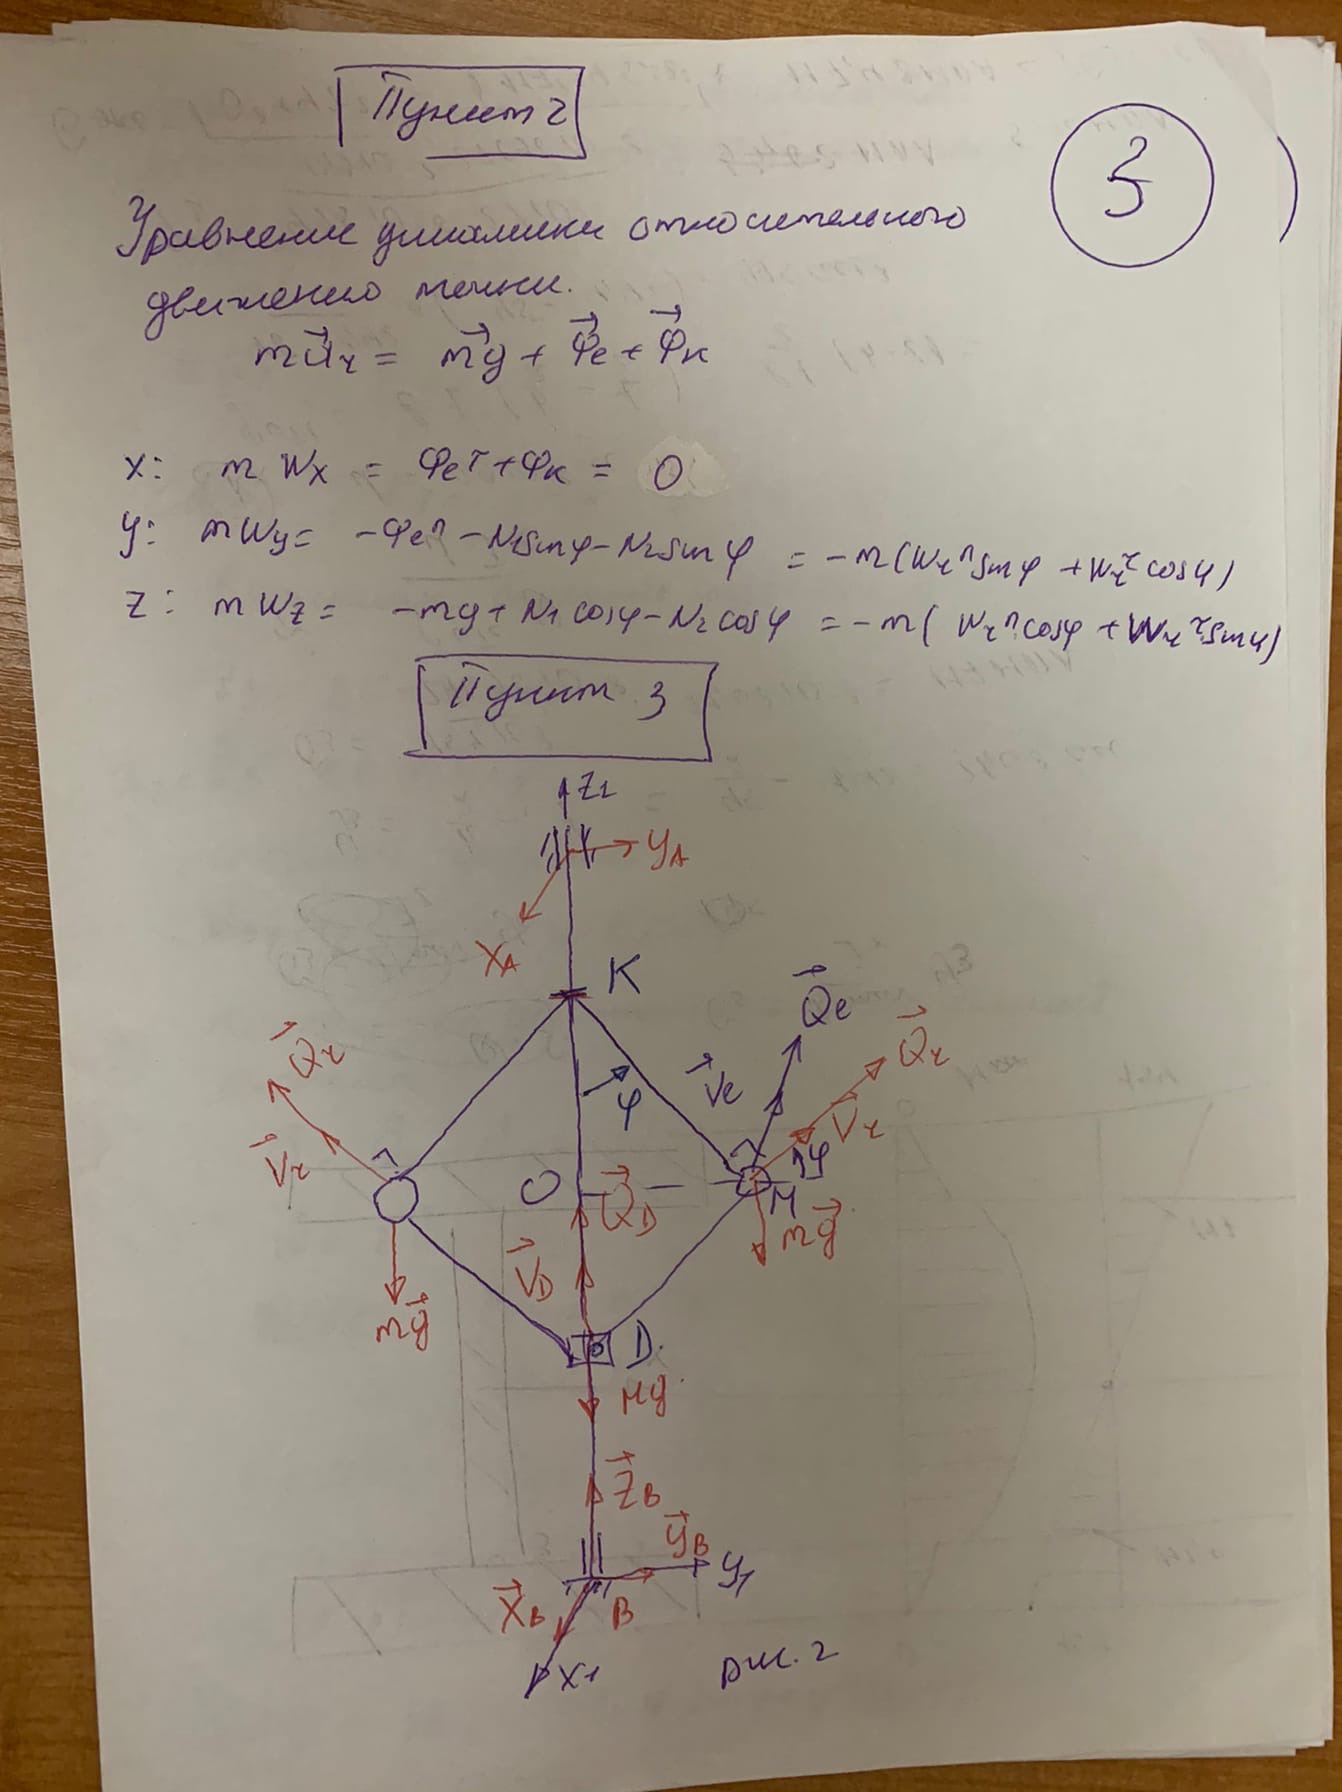 Пункт 2
3
Уравнение динамики относительного
движению точки.
ma⃗r = mg⃗ + Φ⃗e + Φ⃗к
x: m Wx = Φeτ + Φк = 0
y: m Wy = -Φeⁿ - N1sinφ - N2sinφ = -m(Wrⁿsinφ + Wrτcosφ)
z: m Wz = -mg + N1cosφ - N2cosφ = -m( Wrⁿcosφ + Wrτsinφ)
Пункт 3
z1
yA
xA
K
Q⃗e
Q⃗r
Q⃗r
V⃗e
φ
V⃗r
V⃗r
φ
O
Q⃗D
M
mg⃗
V⃗D
mg⃗
D.
Mg
Z⃗B
y⃗B
y1
X⃗B
B
x1
рис. 2